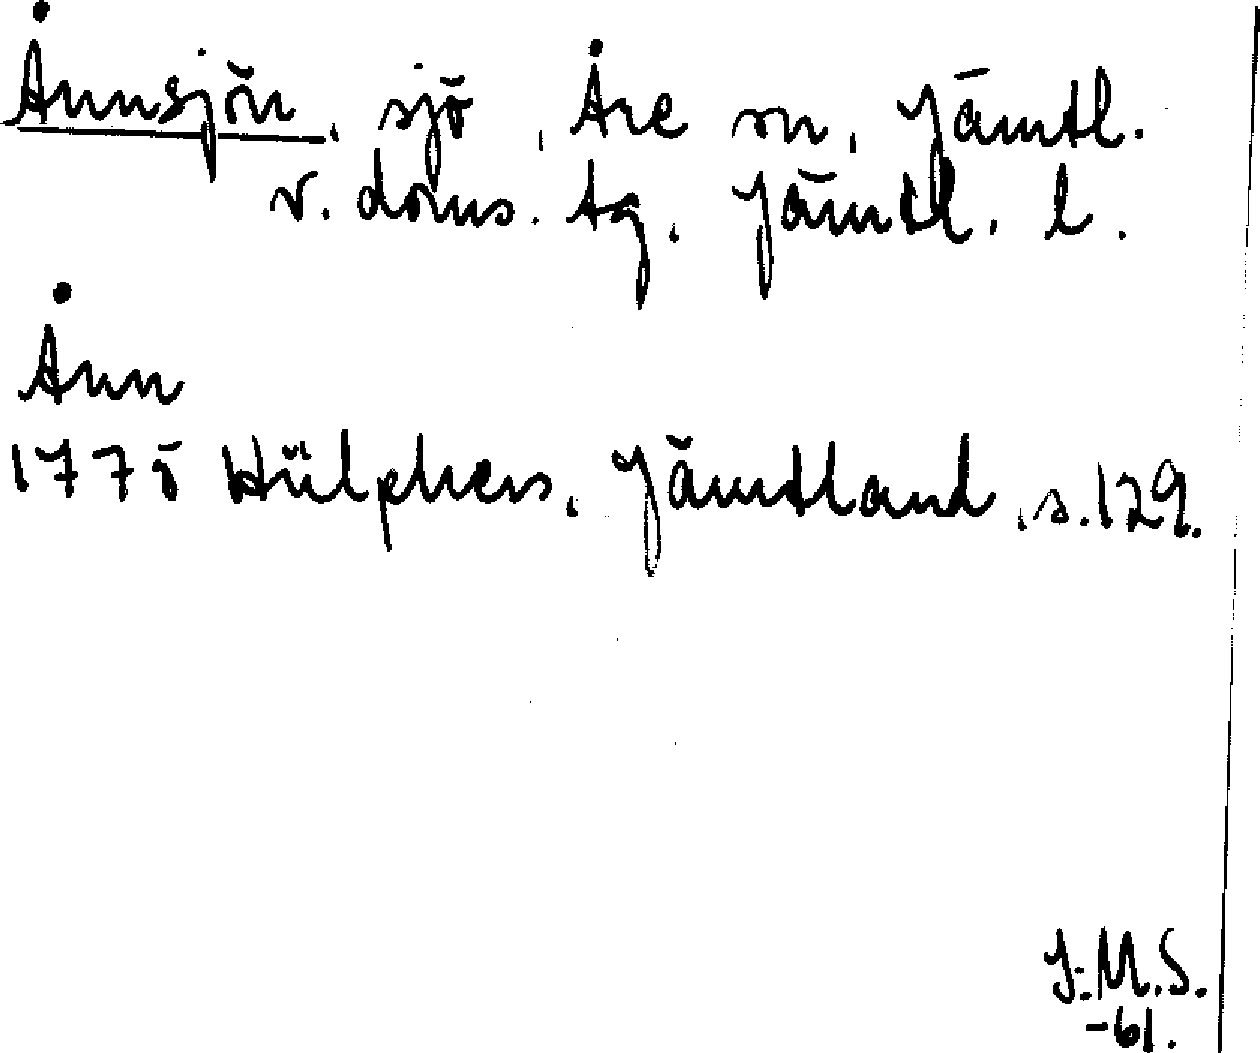 Ånnsjön, sjö, Åre sn, Jämtl.
v. doms. tg, Jämtl. l.
Ånn
1775 Hülphers, Jämtland, s. 129.
J:M.S.
-61.